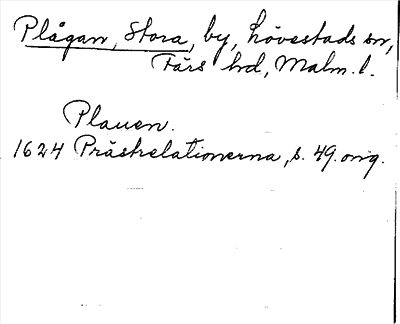 Plågan, Stora, by, Lövestads sn,
Färs hd, Malm. l.
Plauen.
1624 Prästrelationerna, s. 49. orig.